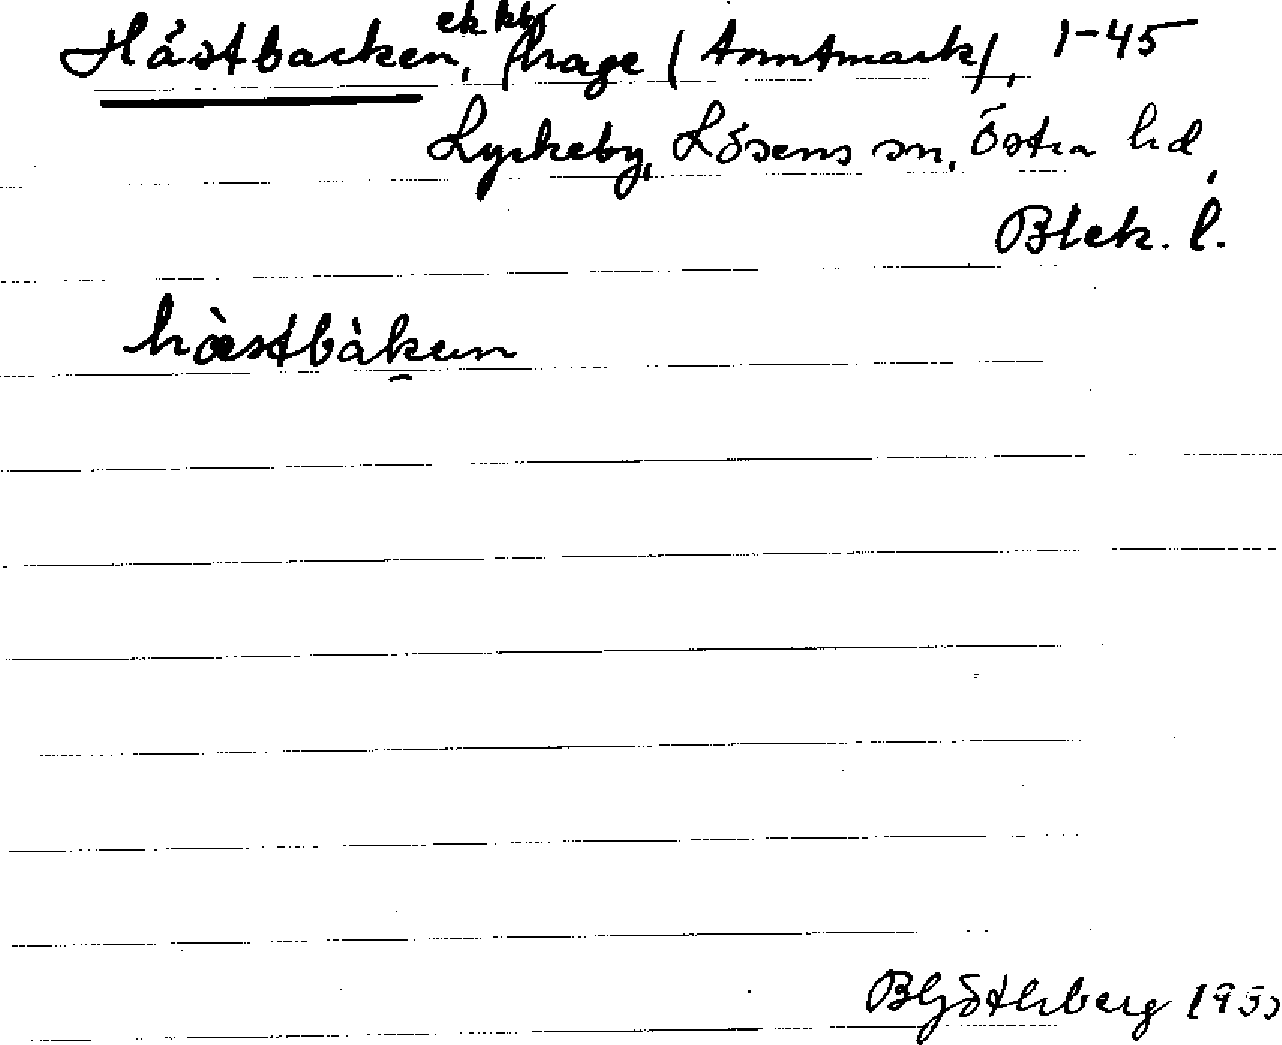 Hästbacken, ek kbr hage (tomtmark), 1-45
Lyckeby, Lösens sn, Östra hd,
Blek. l.
hàstbàkən
B Göthberg